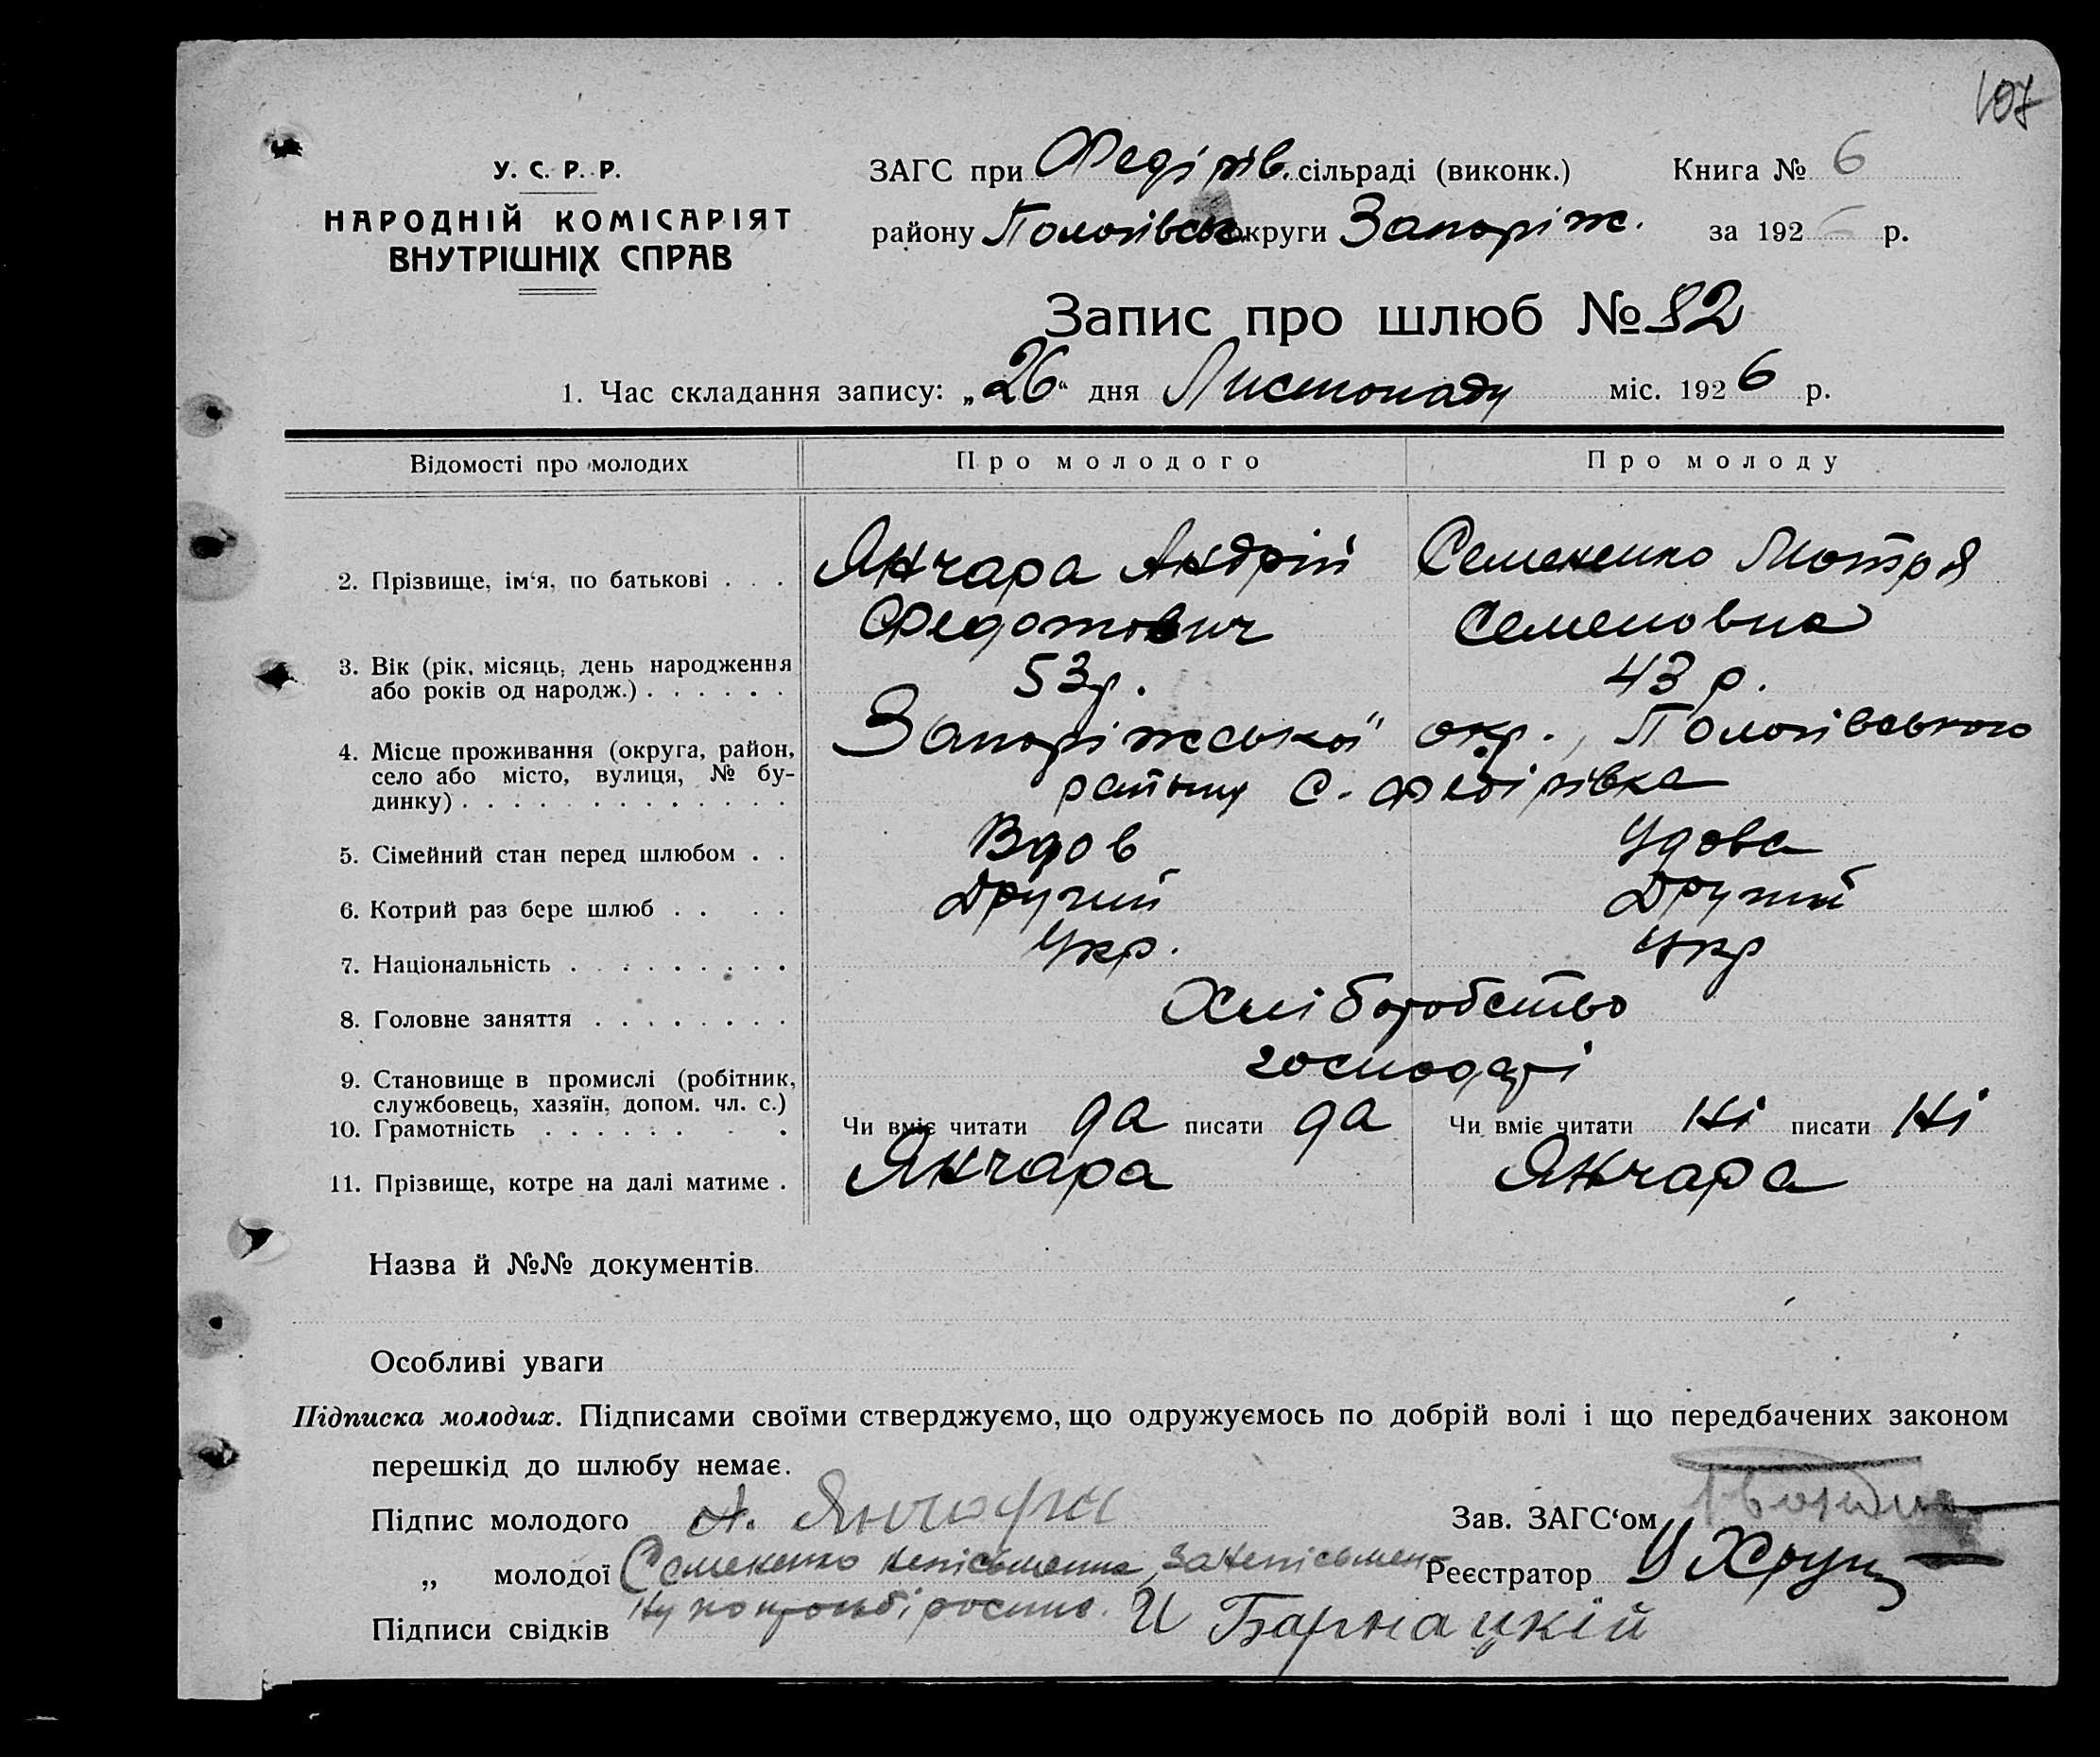 107
У. С. Р. Р.
НАРОДНІЙ КОМІСАРІЯТ
ВНУТРІШНІХ СПРАВ
ЗАГС при Федірів. сільраді (виконк.) Книга № 6
району Пологівськ. округи Запоріж. за 1926 р.
Запис про шлюб № 82
1. Час складання запису: „26“ дня Листопаду міс. 1926 р.
Відомості про молодих Про молодого Про молоду
2. Прізвище, ім‘я, по батькові . . . Янчара Андрій Федотович Семененко Мотря Семеновна
3. Вік (рік, місяць, день народження
або років од народж.) . . . . . . 53 р. 43 р.
4. Місце проживання (округа, район,
село або місто, вулиця, № бу-
динку) . . . . . . . . . . . . . Запоріжської окр., Пологівського
району с. Федірівка
5. Сімейний стан перед шлюбом . . Вдов Удова
6. Котрий раз бере шлюб . . . . Другий Другий
7. Національність . . . . . . . . . Укр. Укр
8. Головне заняття . . . . . . . . Хліборобство
9. Становище в промислі (робітник,
службовець, хазяїн, допом. чл. с.) господарі
10. Грамотність . . . . . . . . Чи вміє читати да писати да Чи вміє читати Ні писати Ні
11. Прізвище, котре на далі матиме . Янчара Янчара
Назва й №№ документів
Особливі уваги
Підписка молодих. Підписами своїми стверджуємо, що одружуємось по добрій волі і що передбачених законом
перешкід до шлюбу немає.
Підпис молодого А. Янчара Зав. ЗАГС‘ом
„ молодої Семененко неписьменна, за неписьмен- Реєстратор
ну по просьбі росписо. Підписи свідків И Барнацкій